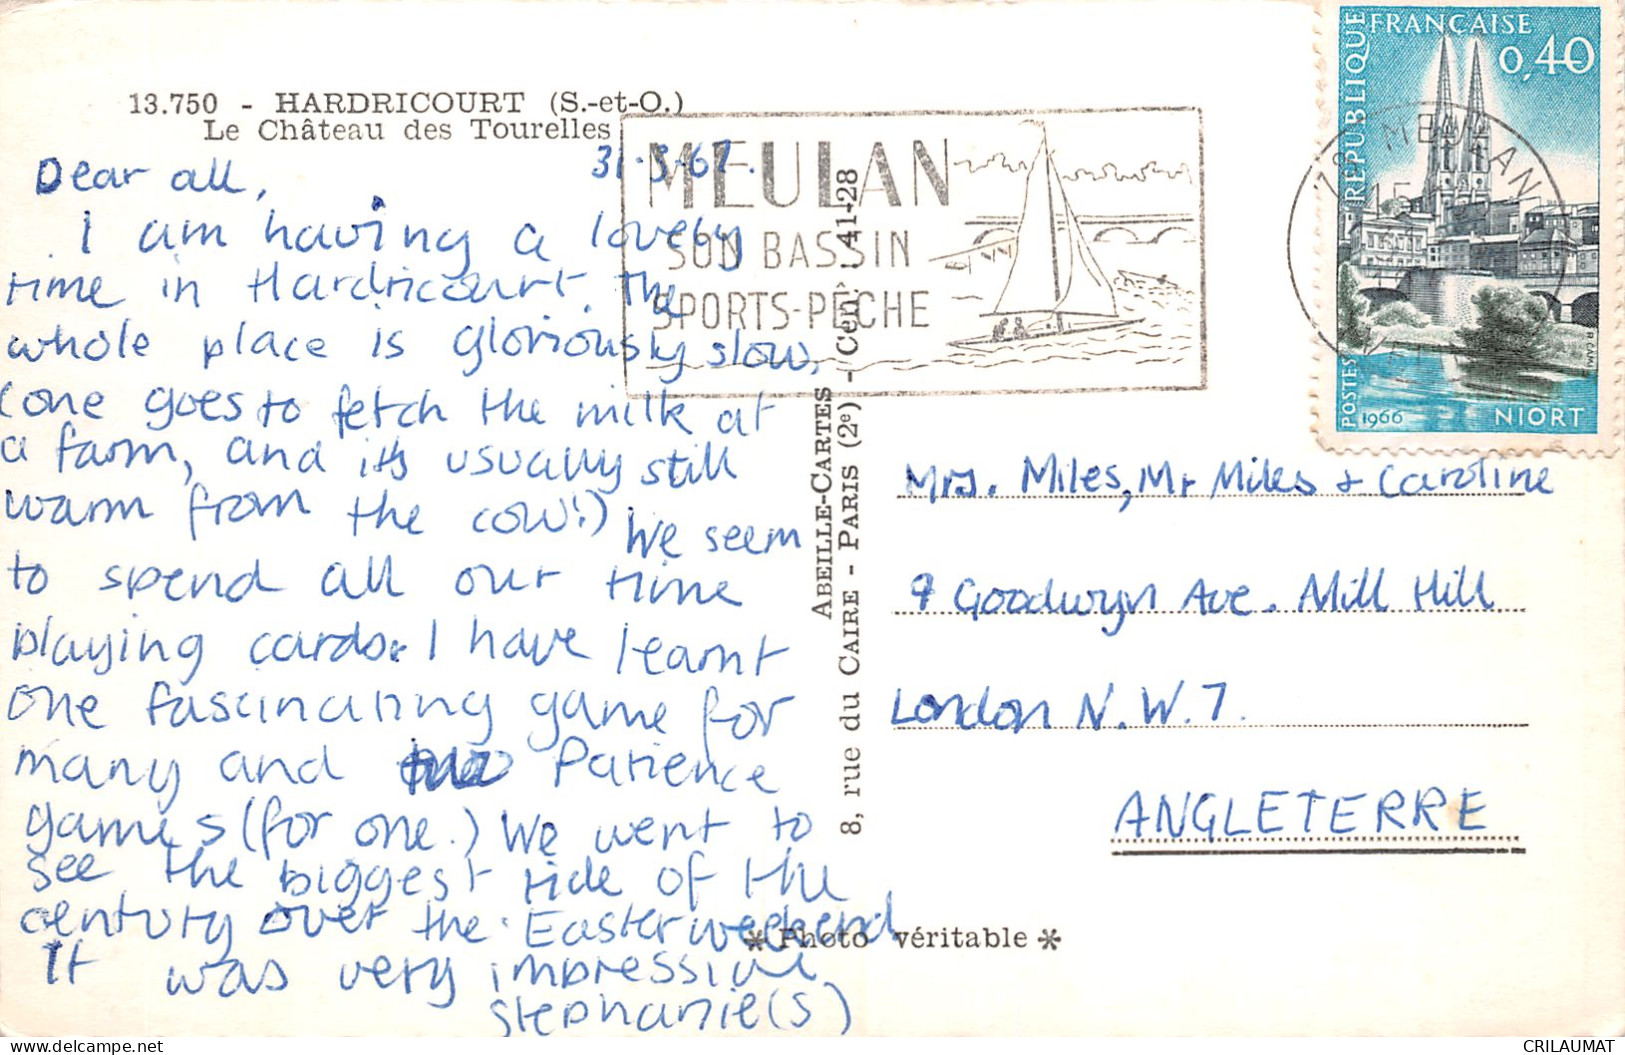 13.750 - HARDRICOURT (S.-et-O.)
Le Château des Tourelles
31-3-67.
Dear all,
I am having a lovely
time in Hardricourt. The
whole place is gloriously slow,
(one goes to fetch the milk at
a farm, and its usually still
warm from the cow!) We seem
to spend all our time
playing cards. I have learnt
one fascinating game for
many and Patience
games (for one.) We went to
see the biggest tide of the
century over the Easter weekend
It was very impressive
Stephanie(s)
MEULAN
SON BASSIN
SPORTS-PÊCHE
ABEILLE-CARTES
8, rue du CAIRE - PARIS (2e) - Cen. 41-28
RÉPUBLIQUE FRANÇAISE
0,40
POSTES 1966 NIORT
78 MEULAN
Mrs. Miles, Mr Miles + Caroline
9 Goodwyn Ave. Mill Hill
London N.W.7.
ANGLETERRE
* Photo véritable *
CRILAUMAT
www.delcampe.net